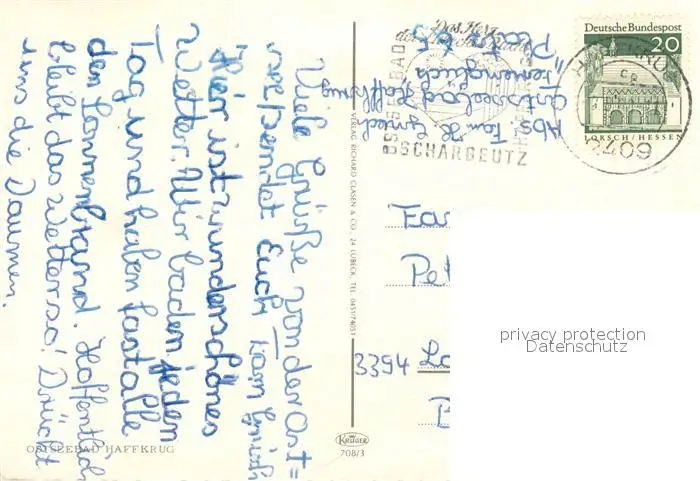 Viele Grüße von der Ost=
seesendet Euch Fam.
Hier ist wunderschönes
Wetter. Wir baden jeden
Tag und haben fast alle
den Sonnenbrand. Hoffentlich
bleibt das Wetter so! Drückt
uns die Daumen.
OSTSEEBAD HAFFKRUG
VERLAG RICHARD CLASEN & CO., 24 LÜBECK, TEL. 0451/74051
KRÜGER
708/3
Das Herz
OSTSEEBAD
SCHARBEUTZ
Abs. Fam.
Ostseebad Haffkrug
Deutsche Bundespost
20
LORSCH / HESSEN
2409
Fa
Pet
3394 La
privacy protection
Datenschutz